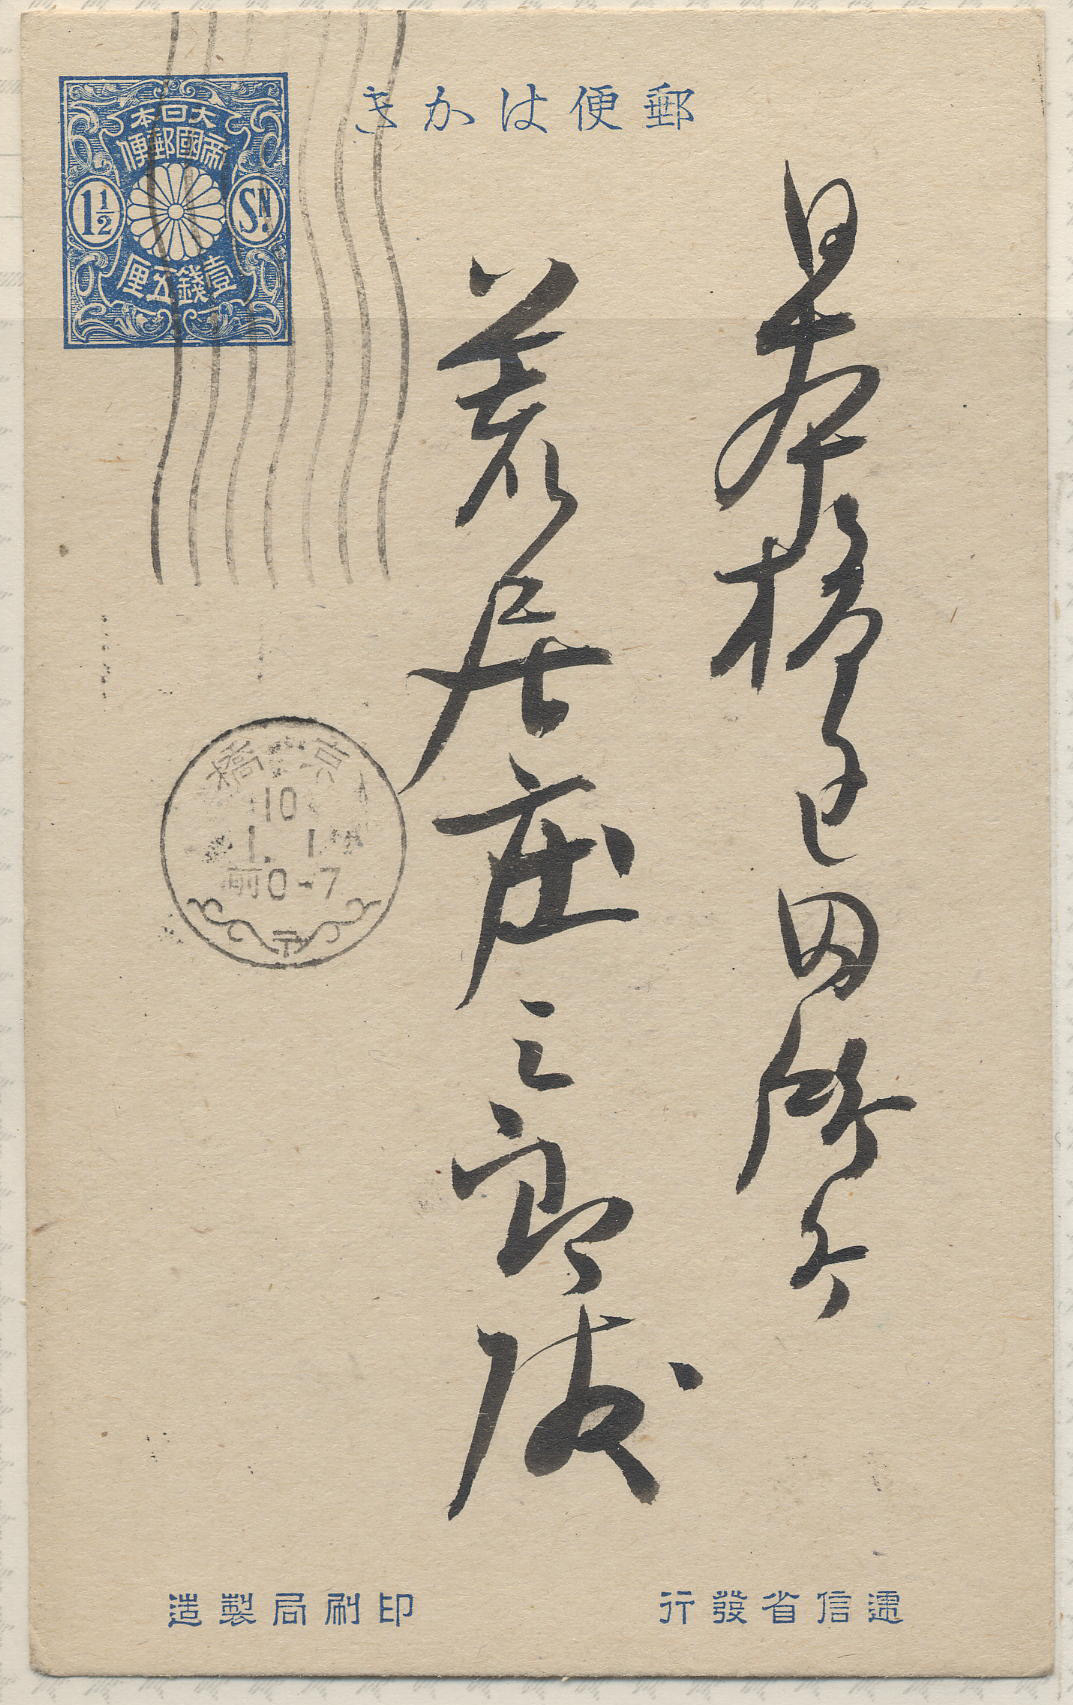 郵便はかき
大日本
帝國郵便
1½
SN.
壹錢五厘
日本橋
荒居庄三郎殿
京橋
10
1. 1
前0-7
遞信省發行
印刷局製造